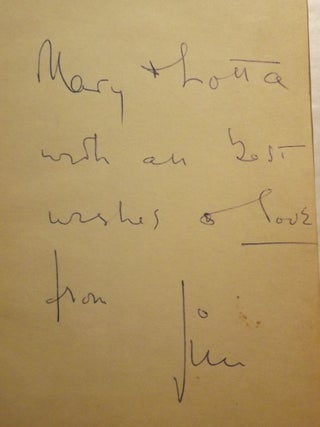 Mary + Lotta
with all best
wishes & love
from
Jim